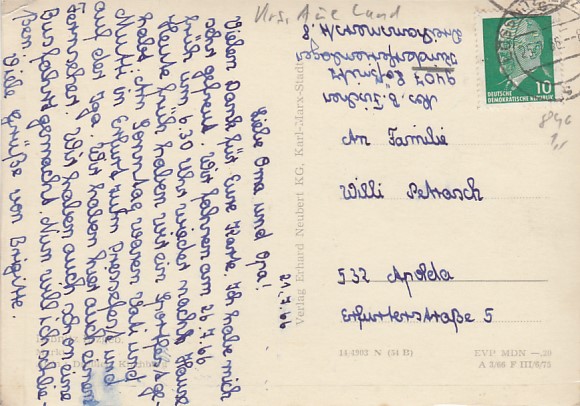 21.7.66
Liebe Oma und Opa!
Vielen Dank für Eure Karte. Ich habe mich
sehr gefreut. Wir fahren am 26.7.66
früh um 6.30 Uhr wieder nach Hause.
Heute früh haben wir ein Sportfest ge-
habt. Am Sonntag waren Vati und
Mutti in Erfurt zum und
auf der iga. Wir haben hier auch einen
Fernseher. Wir haben auch schon eine
Busfahrt gemacht. Nun will ich schlie-
ßen. Viele Grüße von Brigitt.
Krs. Aue Land
Abs. B.
9407 Lößnitz
Kinderferienlager
8
DEUTSCHE
DEMOKRATISCHE REPUBLIK
10
1,,
An Familie
Willi Petrasch
532 Apolda
Erfurterstraße 5
Verlag Erhard Neubert KG, Karl-Marx-Stadt
14/4903 N (54 B)
EVP MDN —.20
A 3/66 F III/6/75